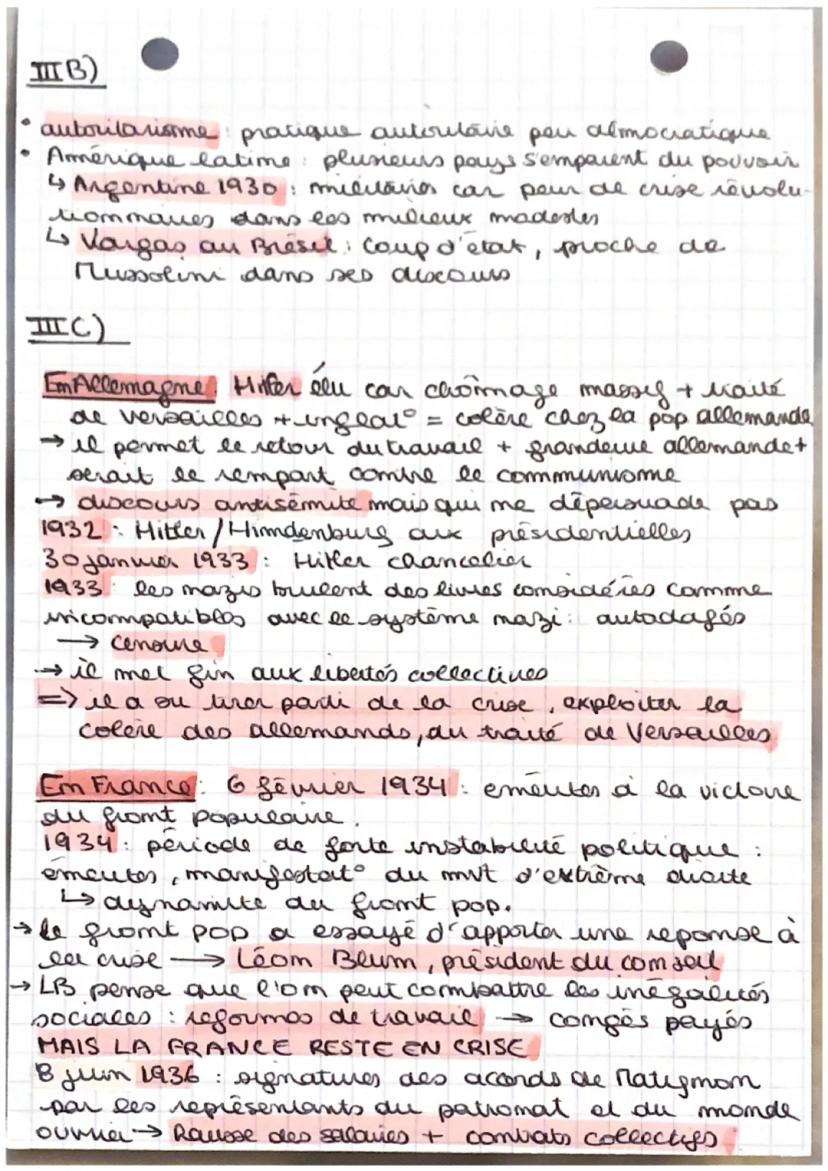 III B)
• autoritarisme : pratique autoritaire peu démocratique
• Amérique latine : plusieurs pays s'emparent du pouvoir
↳ Argentine 1930 : militaires car peur de crise révolu-
tionnaires dans les milieux modestes
↳ Vargas au Brésil : coup d'état, proche de
Mussolini dans ses discours
III C)
En Allemagne Hitler élu car chômage massif + traité
de Versailles + inégal° = colère chez la pop allemande
→ il permet le retour du travail + grandeur allemande +
serait le rempart contre le communisme
→ discours antisémite mais qui ne dépersuade pas
1932 : Hitler / Hindenburg aux présidentielles
30 janvier 1933 : Hitler chancelier
1933 : les nazis brulent des livres considérés comme
incompatibles avec le système nazi : autodafés
→ censure
→ il met fin aux libertés collectives
=> il a su tirer parti de la crise, exploiter la
colère des allemands, du traité de Versailles
En France : 6 février 1934 : émeutes à la victoire
du front populaire.
1934 : période de forte instabilité politique :
émeutes, manifestat° du mvt d'extrême droite
↳ dynamite du front pop.
→ le front pop a essayé d'apporter une réponse à
la crise → Léon Blum, président du conseil
→ LB pense que l'on peut combattre les inégalités
sociales : reformes de travail → congés payés
MAIS LA FRANCE RESTE EN CRISE
8 juin 1936 : signatures des accords de Matignon
par les représentants du patronat et du monde
ouvrier → Hausse des salaires + contrats collectifs